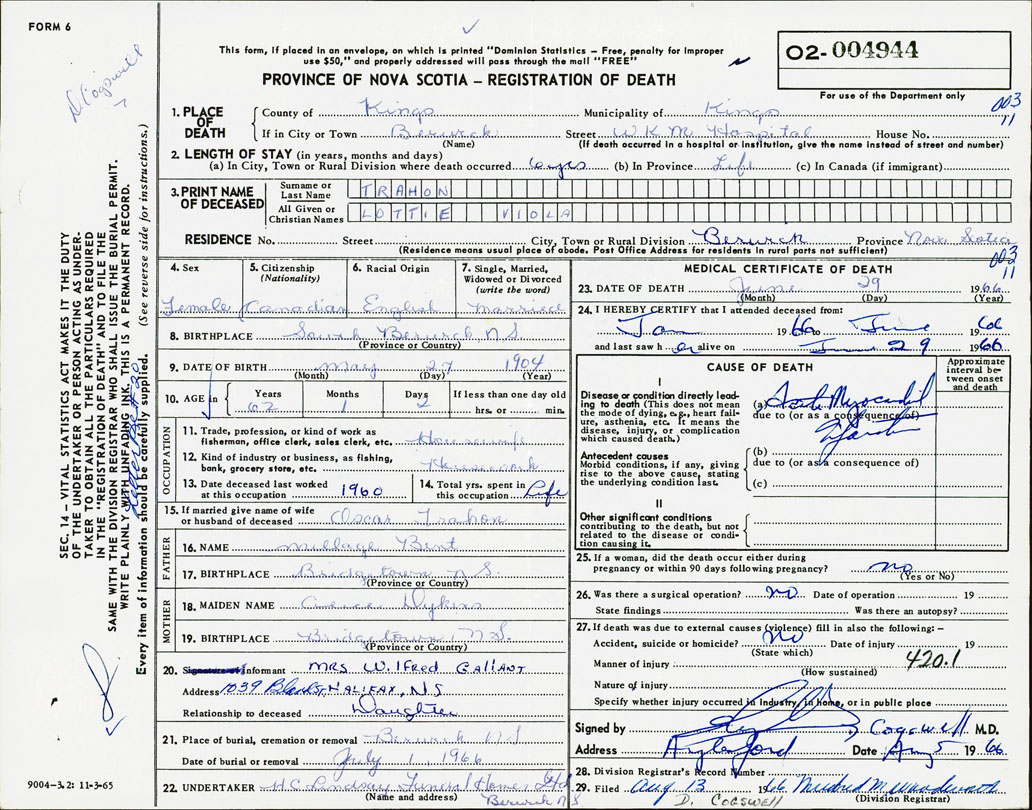 FORM 6
This form, if placed in an envelope, on which is printed "Dominion Statistics – Free, penalty for improper
use $50," and properly addressed will pass through the mail "FREE"
PROVINCE OF NOVA SCOTIA – REGISTRATION OF DEATH
02-004944
For use of the Department only
003
11
D Cogswell
1. PLACE OF DEATH
County of Kings Municipality of Kings
If in City or Town Berwick Street W K M Hospital House No.
(Name) (If death occurred in a hospital or institution, give the name instead of street and number)
2. LENGTH OF STAY (in years, months and days)
(a) In City, Town or Rural Division where death occurred (b) In Province Life (c) In Canada (if immigrant)
3. PRINT NAME OF DECEASED
Surname or Last Name TRAHON
All Given or Christian Names LOTTIE VIOLA
RESIDENCE No. Street City, Town or Rural Division Berwick Province Nova Scotia
(Residence means usual place of abode. Post Office Address for residents in rural parts not sufficient)
003
11
4. Sex Female
5. Citizenship (Nationality) Canadian
6. Racial Origin English
7. Single, Married, Widowed or Divorced (write the word) Married
8. BIRTHPLACE South Berwick N.S.
(Province or Country)
9. DATE OF BIRTH May 27 1904
(Month) (Day) (Year)
10. AGE in Years 62 Months 1 Days 2 If less than one day old hrs. or min.
OCCUPATION
11. Trade, profession, or kind of work as fisherman, office clerk, sales clerk, etc. Housewife
12. Kind of industry or business, as fishing, bank, grocery store, etc. Housework
13. Date deceased last worked at this occupation 1960
14. Total yrs. spent in this occupation Life
15. If married give name of wife or husband of deceased Oscar Trahon
FATHER
16. NAME Millage Bent
17. BIRTHPLACE Bridgetown N.S.
(Province or Country)
MOTHER
18. MAIDEN NAME Dykins
19. BIRTHPLACE Bridgetown, N.S.
(Province or Country)
20. Signature of Informant MRS Wilfred GALLANT
Address 1039 HALIFAX, N.S
Relationship to deceased Daughter
21. Place of burial, cremation or removal Berwick N S
Date of burial or removal July 1 1966
22. UNDERTAKER H.C. Lindsay Funeral Home Ltd
(Name and address) Berwick N S
9004–3.2: 11-3-65
MEDICAL CERTIFICATE OF DEATH
23. DATE OF DEATH June 29 1966
(Month) (Day) (Year)
24. I HEREBY CERTIFY that I attended deceased from:
Jan 1966 to June 1966
and last saw h er alive on June 29 1966
CAUSE OF DEATH
Approximate interval between onset and death
I
Disease or condition directly leading to death (This does not mean the mode of dying, e.g., heart failure, asthenia, etc. It means the disease, injury, or complication which caused death.)
(a) Acute Myocardial
due to (or as a consequence of)
Infarction
Antecedent causes
Morbid conditions, if any, giving rise to the above cause, stating the underlying condition last.
(b)
due to (or as a consequence of)
(c)
II
Other significant conditions
contributing to the death, but not related to the disease or condition causing it.
25. If a woman, did the death occur either during
pregnancy or within 90 days following pregnancy? no
(Yes or No)
26. Was there a surgical operation? no Date of operation 19
State findings Was there an autopsy?
27. If death was due to external causes (violence) fill in also the following: –
Accident, suicide or homicide? No Date of injury 19
(State which)
Manner of injury 420.1
(How sustained)
Nature of injury
Specify whether injury occurred in industry, in home, or in public place
Signed by Cogswell M.D.
Address Aylesford Date Aug 5 1966
28. Division Registrar's Record Number
29. Filed Aug 13 1966 Mildred M Woodworth
(Division Registrar)
D. COGSWELL
SEC. 14 – VITAL STATISTICS ACT MAKES IT THE DUTY
OF THE UNDERTAKER OR PERSON ACTING AS UNDER-
TAKER TO OBTAIN ALL THE PARTICULARS REQUIRED
IN THE "REGISTRATION OF DEATH" AND TO FILE THE
SAME WITH THE DIVISION REGISTRAR WHO SHALL ISSUE THE BURIAL PERMIT.
WRITE PLAINLY WITH UNFADING INK. THIS IS A PERMANENT RECORD.
Every item of information should be carefully supplied. (See reverse side for instructions.)